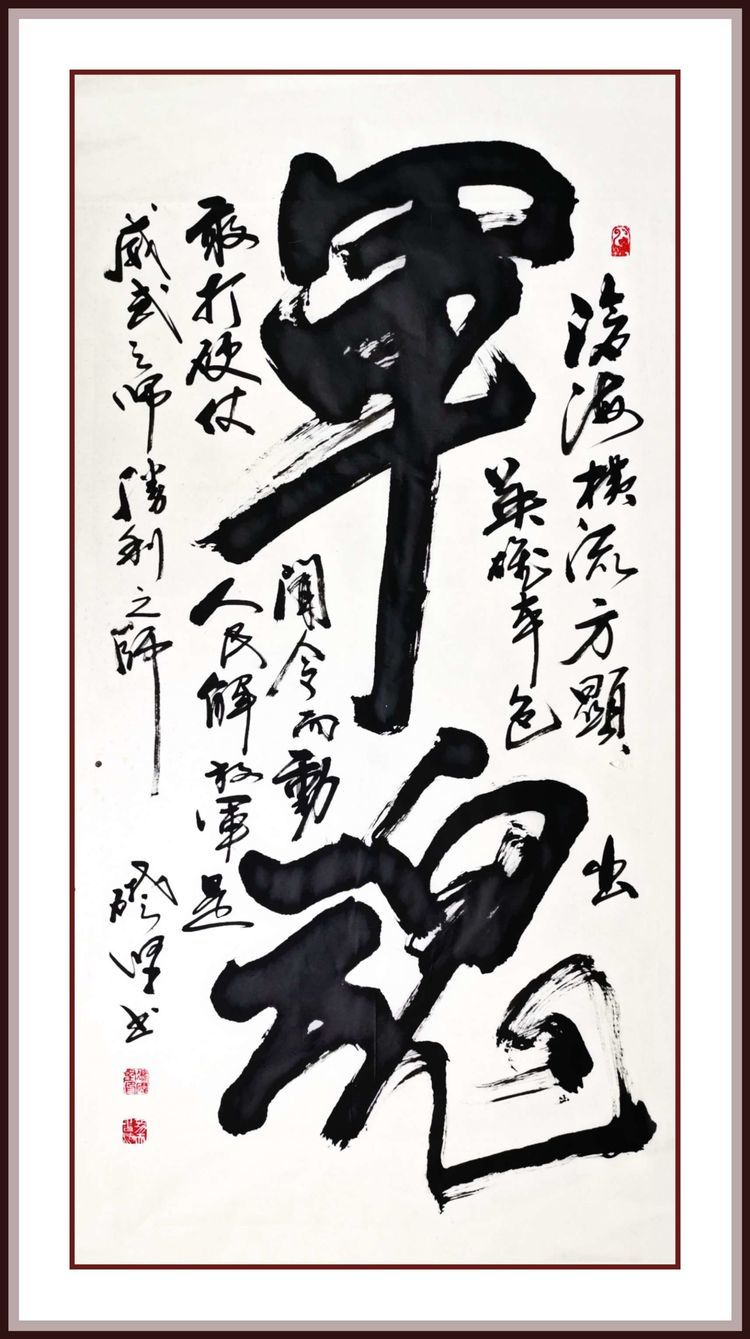 軍魂
滄海横流方顯出
英雄本色
聞令而動
敢打硬仗人民解放軍是
威武之師勝利之師
书